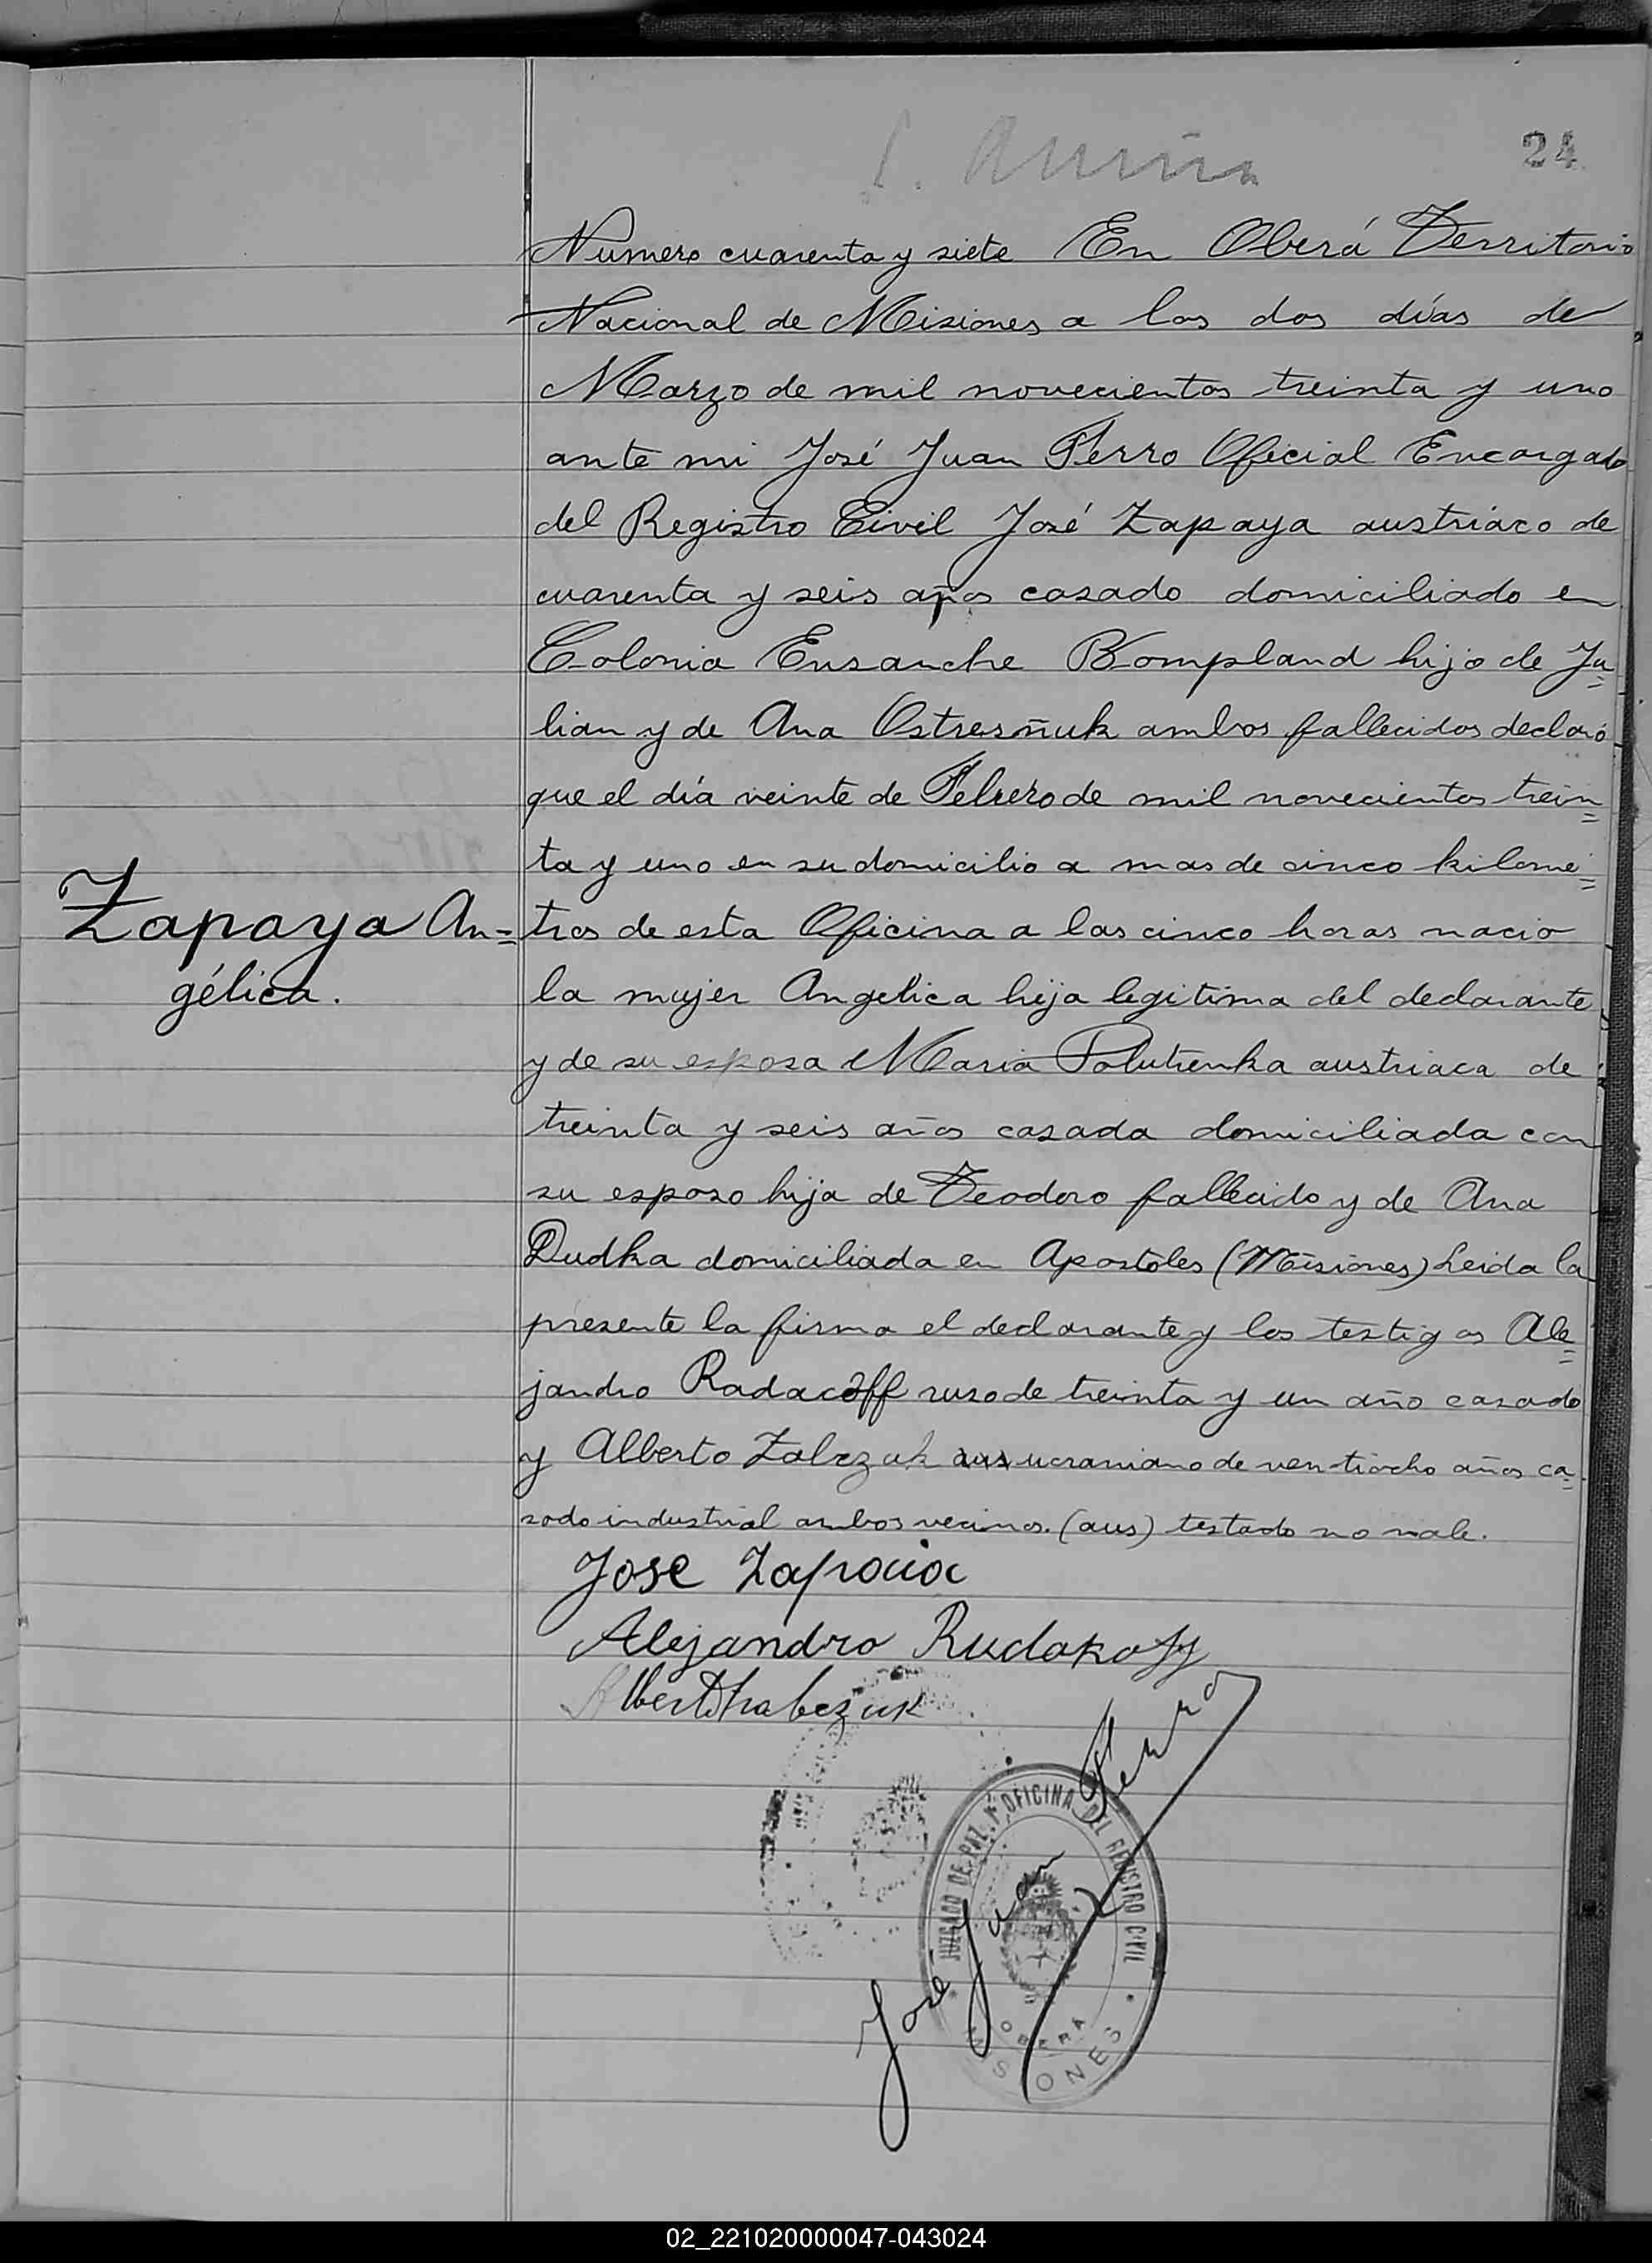 24
Numero cuarenta y siete En Oberá Territorio
Nacional de Misiones a los dos días de
Marzo de mil novecientos treinta y uno
ante mi José Juan Ferro Oficial Encargado
del Registro Civil José Zapaya austríaco de
cuarenta y seis años casado domiciliado en
Colonia Ensanche Bompland hijo de Ju=
lian y de Ana Ostresñuk ambos fallecidos declaró
que el día veinte de Febrero de mil novecientos trein=
ta y uno en su domicilio a mas de cinco kilome=
Zapaya An=
gélica.
tros de esta Oficina a las cinco horas nacio
la mujer Angelica hija legitima del declarante
y de su esposa Maria Polutrenka austriaca de
treinta y seis años casada domiciliada con
su esposo hija de Teodoro fallecido y de Ana
Dudka domiciliada en Apostoles (Misiones) Leida la
presente la firma el declarante y los testigos Ale=
jandro Radacoff ruso de treinta y un año casado
y Alberto Zabezuk aus ucraniano de ventiocho años ca=
sado industrial ambos vecinos. (aus) testado no vale.
Jose Zapaia
Alejandro Rudakoff
José Juan Ferro
JUZGADO DE PAZ Y OFICINA DEL REGISTRO CIVIL
OBERA
MISIONES
02_221020000047-043024